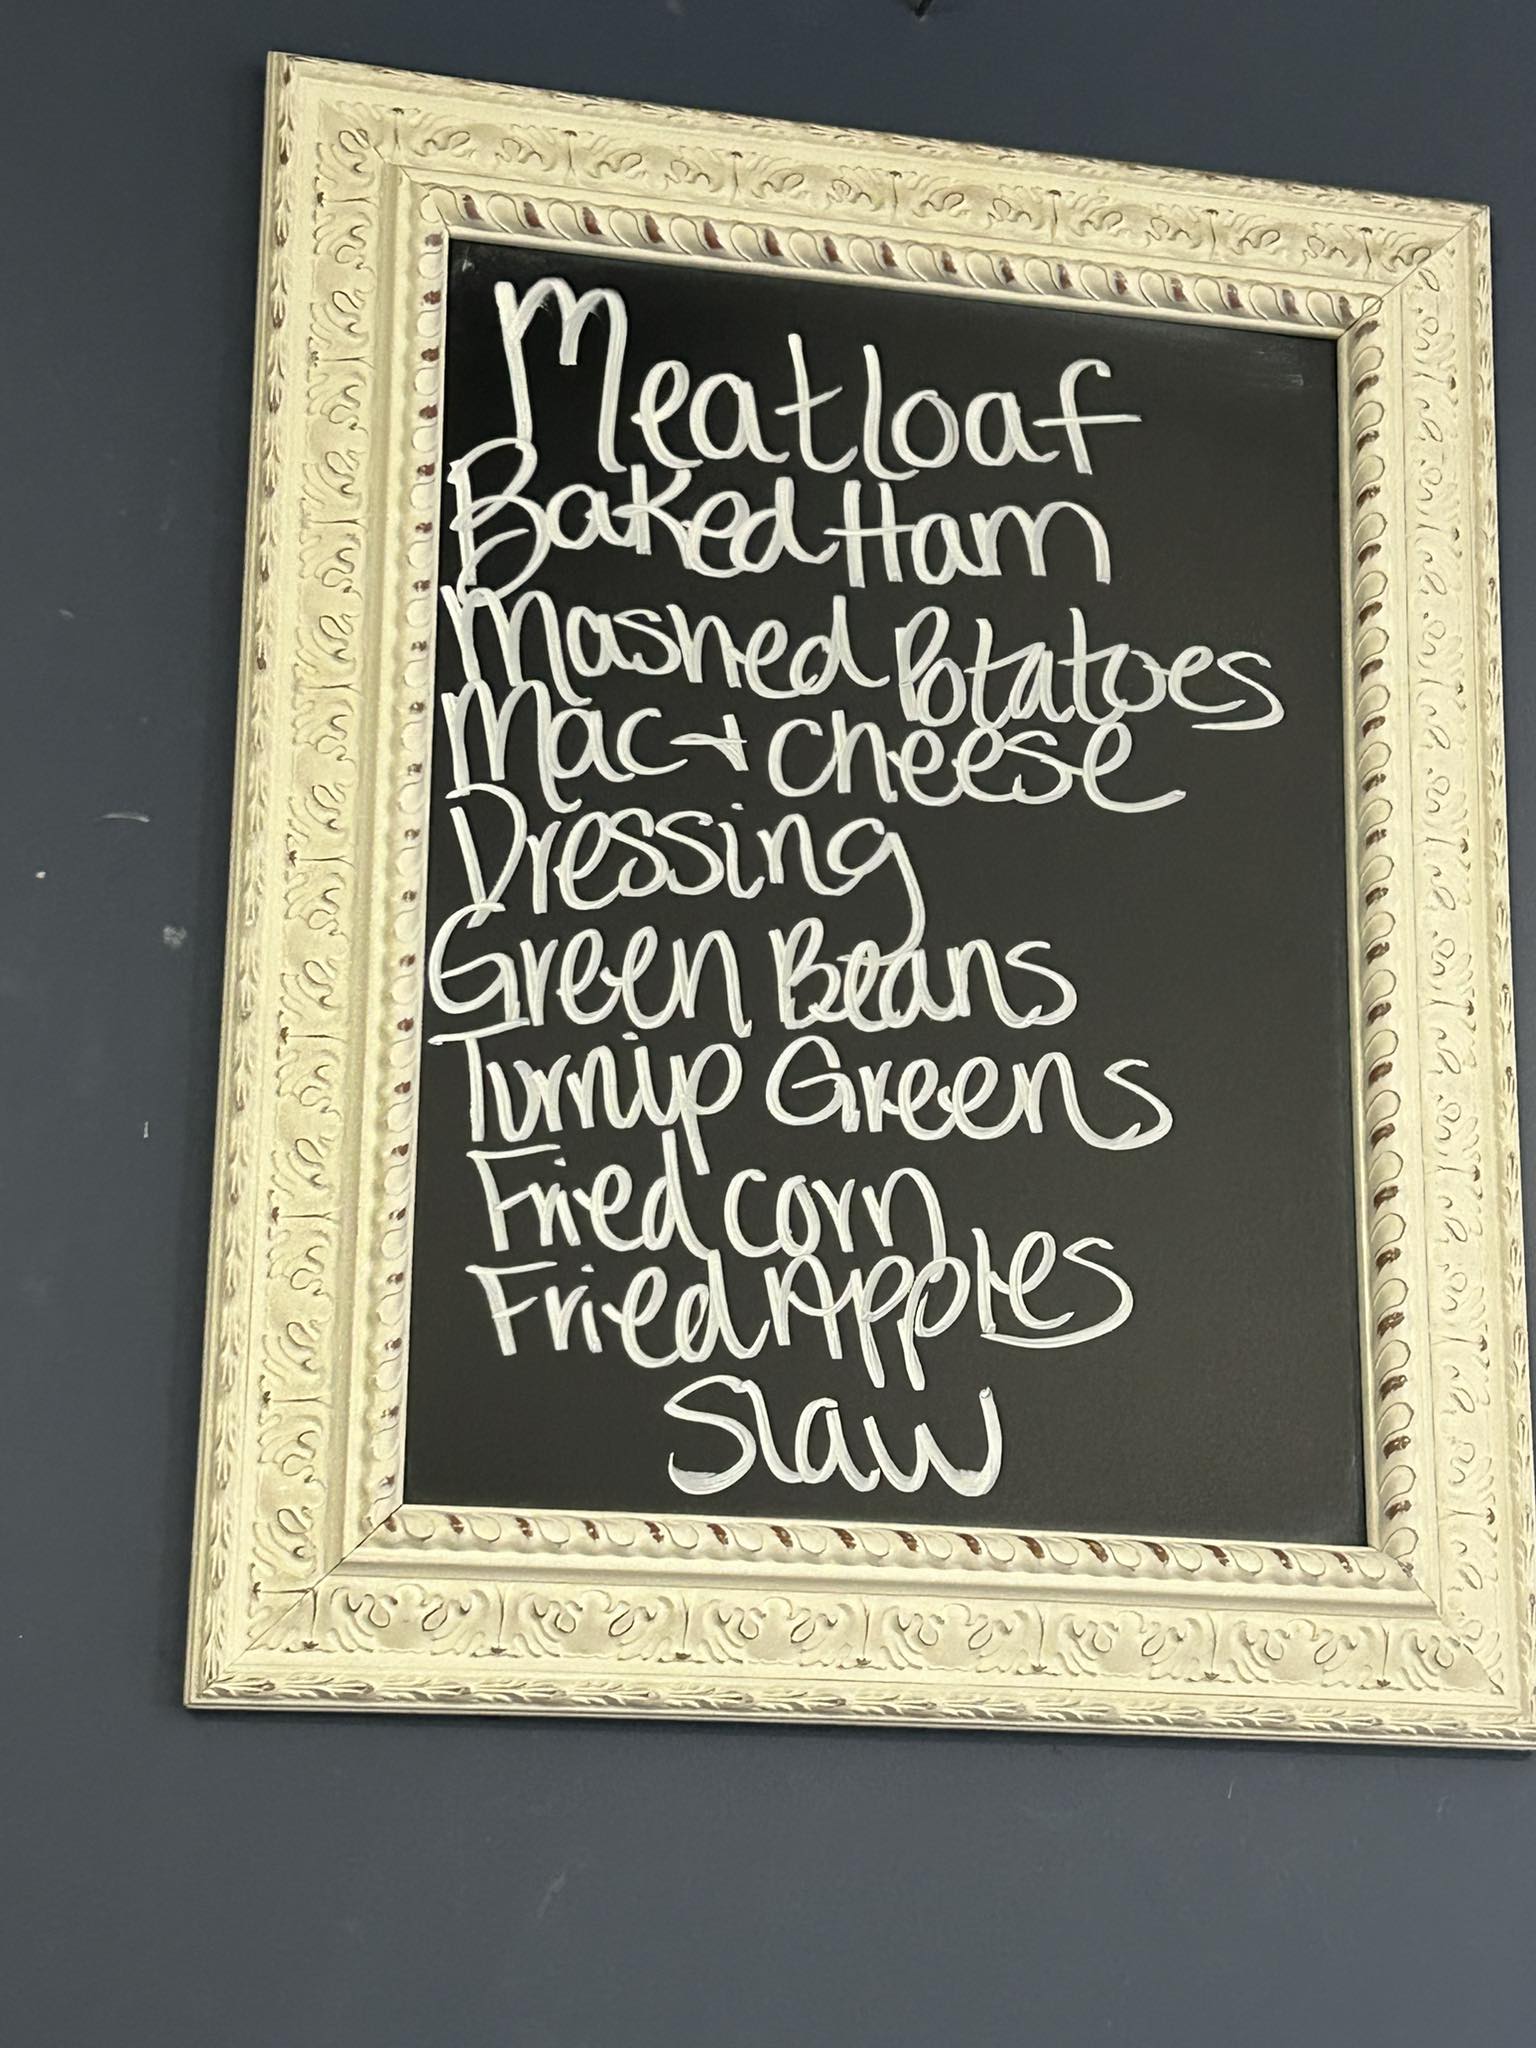 Meatloaf
Baked Ham
Mashed Potatoes
Mac + cheese
Dressing
Green Beans
Turnip Greens
Fried corn
Fried Apples
Slaw